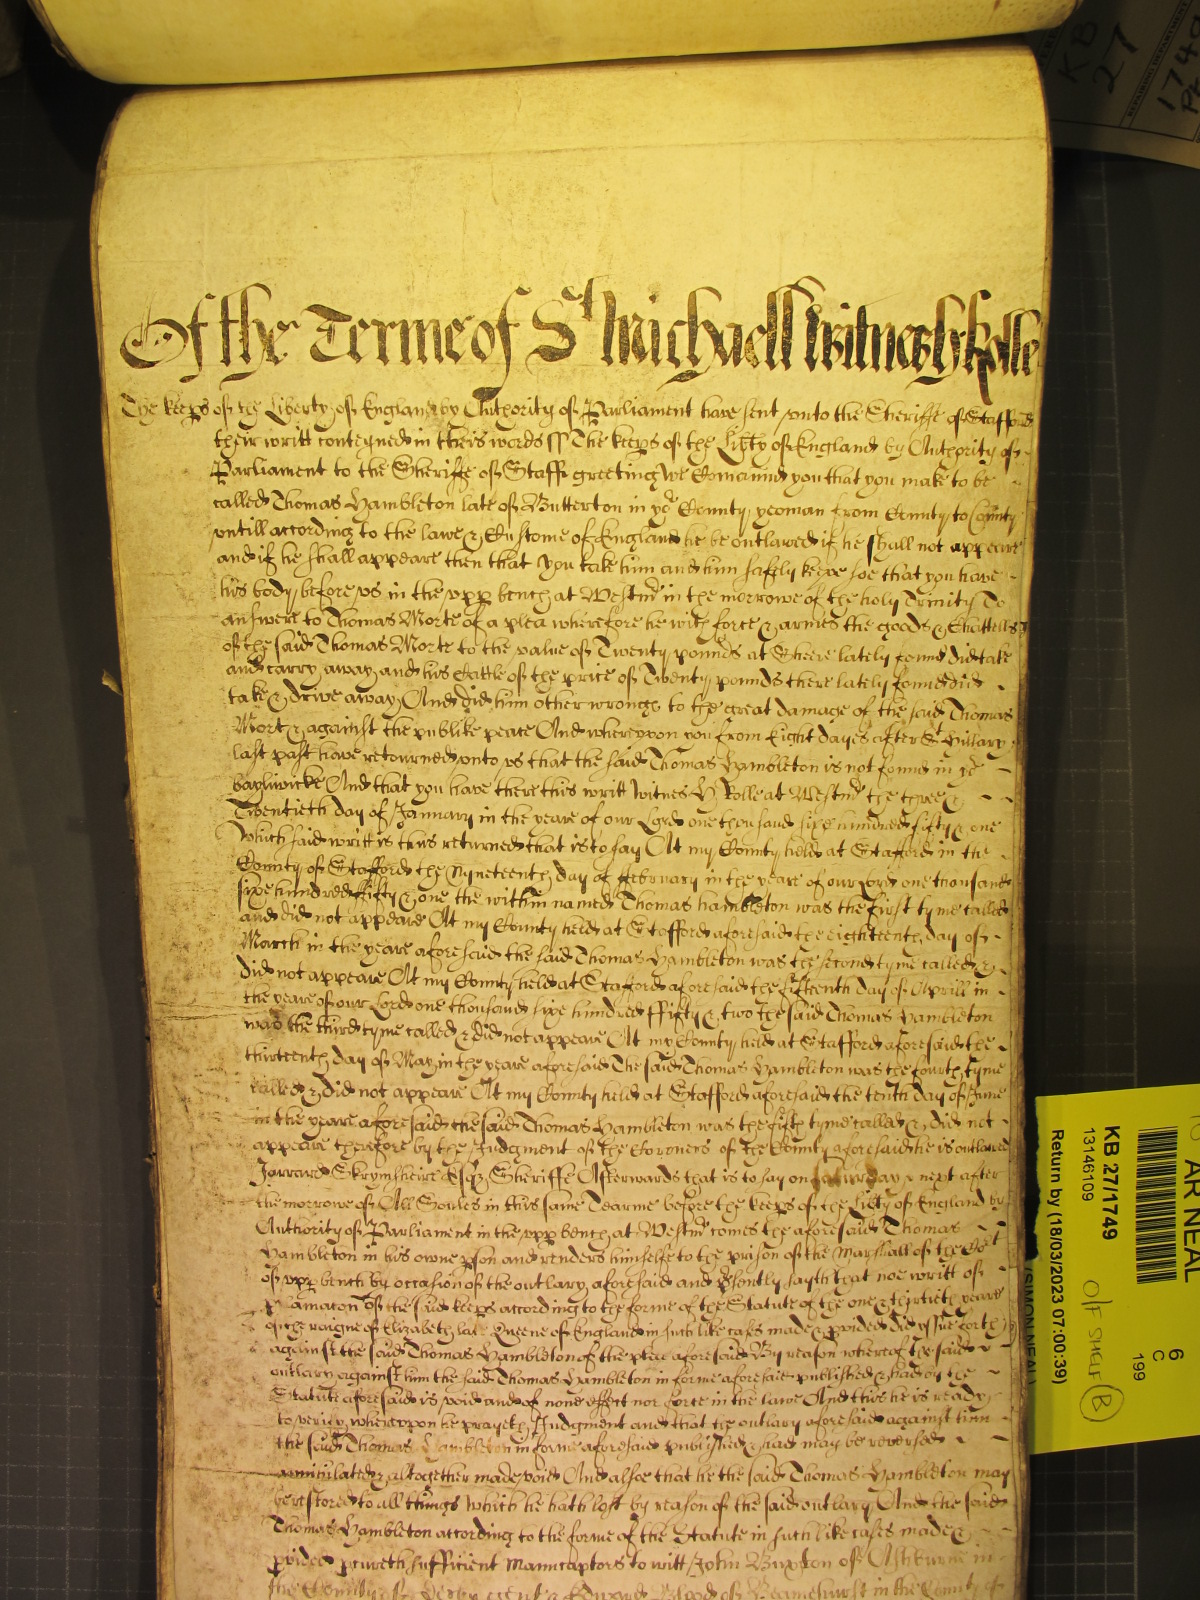 Of the Terme of St Michaell Witnes H Rolle
The keeps of the Liberty of England by Authority of Parliament have sent unto the Sheriffe of Stafford
their writt conteyned in theis words ss The keeps of the Libty of England by Authority of
Parliament to the Sheriffe of Staff greeting We Comaund you that you make to be
called Thomas Hambleton late of Butterton in yor County yeoman from County to County
untill according to the lawe & Custome of England he be outlawed if he shall not appeare
and if he shall appeare then that you take him and him safely keepe soe that you have
his body before us in the upp bench at Westmr in the morrowe of the holy Trinity To
answere to Thomas Morte of a plea wherefore he with force & armes the goods & Chattells
of the said Thomas Morte to the value of Twenty pounds at Sheere lately found did take
and carry away and his Cattle of the price of Twenty pounds there lately found did
take & drive away And did him other wrongs to the great damage of the said Thomas
Mort & against the publike peace And whereupon you from Eight dayes after St Hillary
last past have retourned unto us that the said Thomas Hambleton is not found in yor
bayliwicke And that you have there this writt Witnes H Rolle at Westmr the three &
Twentieth day of January in the yeare of our Lord one thousand sixe hundred fifty & one
Which said writt is thus returned that is to say At my County held at Stafford in the
County of Stafford the Nyneteenth day of ffebruary in the yeare of our Lord one thousand
sixe hundred ffifty & one the within named Thomas hambleton was the first tyme called
and did not appeare At my County held at Stafford aforesaid the eighteenth day of
March in the yeare aforesaid the said Thomas Hambleton was the second tyme called &
did not appeare At my County held at Stafford aforesaid the fifteenth day of Aprill in
the yeare of our Lord one thousand sixe hundred ffifty & two the said Thomas Hambleton
was the third tyme called & did not appeare At my County held at Stafford aforesaid the
thirteenth day of May in the yeare aforesaid The said Thomas Hambleton was the fourth tyme
called & did not appeare At my County held at Stafford aforesaid the tenth day of June
in the yeare aforesaid the said Thomas Hambleton was the fifth tyme called & did not
appeare therefore by the Judgment of the Coroners of the County aforesaid he is outlawed
Jarrard Skrymsheire Esqr Sheriffe Afterwards that is to say on Saturday next after
the morrowe of All Soules in this same Tearme before the keeps of the Libty of England by
Authority of Parliament in the upp bench at Westmr comes the aforesaid Thomas
Hambleton in his owne pson and renders himselfe to the prison of the Marshall of the
of upp bench by occasion of the outlary aforesaid and psently sayth that noe writt of
plamacon of the said keeps according to the forme of the Statute of the one & thirtieth yeare
of the raigne of Elizabeth late Queene of England in such like cases made & pvided did issue forth
against the said Thomas Hambleton of the plea aforesaid By reason whereof the said
outlary against him the said Thomas Hambleton in forme aforesaid published & had by the
Statute aforesaid is void and of none effect nor force in the lawe And this he is ready
to verify whereupon he prayeth Judgment and that the outlary aforesaid against him
the said Thomas Hambleton in forme aforesaid published & had may be reversed
annihilated & altogether made void And alsoe that he the said Thomas Hambleton may
be restored to all things which he hath lost by reason of the said outlary And the said
Thomas Hambleton according to the forme of the Statute in such like cases made &
pvided pcureth sufficient Maincaptors to witt John Buxton of Ashburne in
the County of Derby gent & Edward of in the County of
KB
27
AR NEAL
KB 27/1749
13146109
Return by (18/03/2023 07:00:39)
(SIMON NEAL)
O/F SHELF B
6
C
199